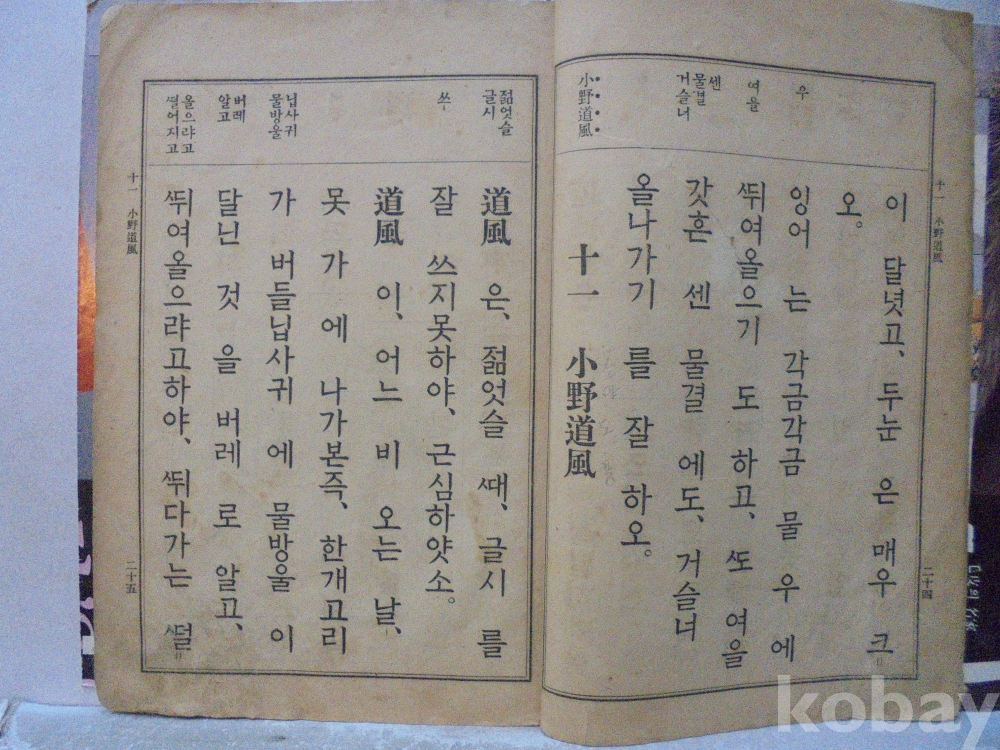 十一 小野道風
二十四
우
여을
센
물결
거슬너
小野道風
이 달녓고、두눈 은 매우 크
오。
잉어 는 각금각금 물 우 에
ᄯᅱ여올으기 도 하고、ᄯᅩ 여을
갓흔 센 물결 에도、거슬너
올나가기 를 잘 하오。
十一 小野道風
젊엇슬
글시
쓰
닙사귀
물방울
버레
알고
올으랴고
ᄯᅥᆯ어지고
道風 은、젊엇슬 ᄯᅢ、글시 를
잘 쓰지못하야、근심하얏소。
道風 이、어느 비 오는 날、
못 가 에 나가본즉、한개고리
가 버들닙사귀 에 물방울 이
달닌 것 을 버레 로 알고、
ᄯᅱ여올으랴고하야、ᄯᅱ다가는 ᄯᅥᆯ
十一 小野道風
二十五
kobay